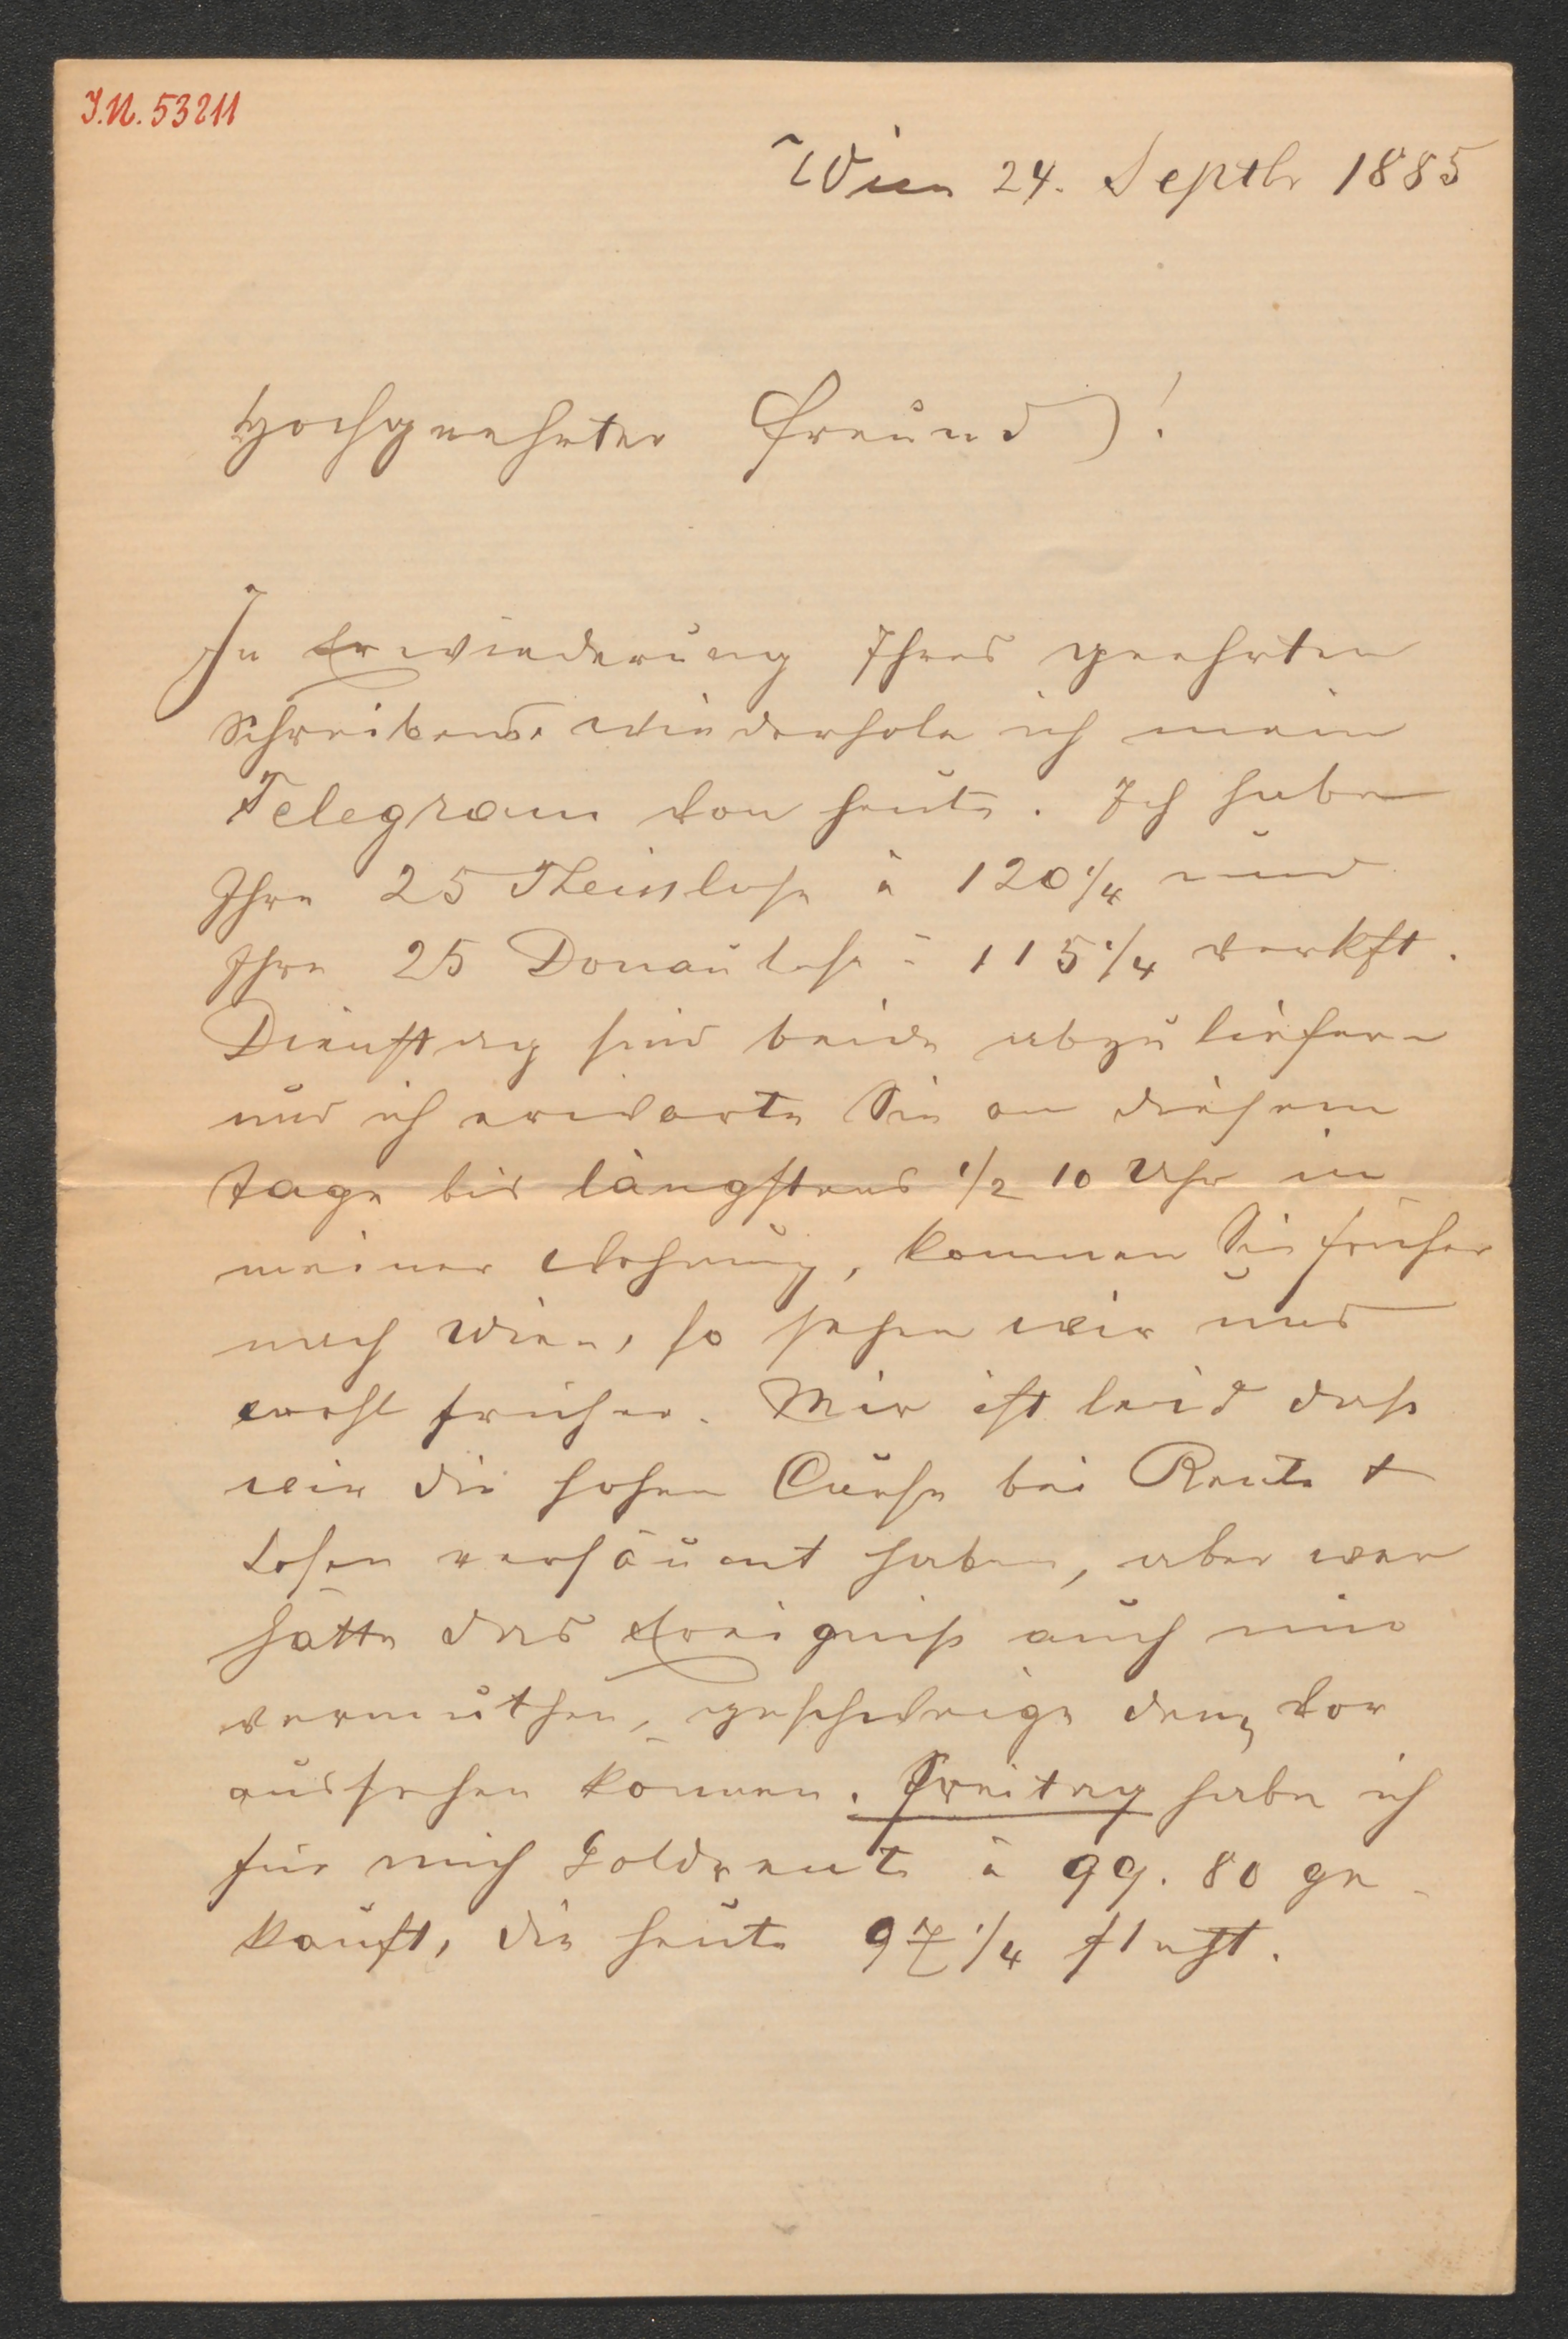 I.N. 53211
Wien 24. Septbr 1885
Hochgeehrter Freund!
In Erwiederung Ihres geehrten
Schreibens wiederhole ich mein
Telegram von heute. Ich habe
Ihre 25 Theislose à 120 1/4 und
Ihre 25 Donaulose à 115 1/4 verkft.
Dienstag sind beide abzuliefern
und ich erwarte Sie an diesem
Tage bis längstens 1/2 10 Uhr in
meiner Wohnung, kommen Sie früher
nach Wien, so sehen wir uns
wohl früher. Mir ist leid daß
wir die hohen Curse bei Rente &
Losen versäumt haben, aber wer
hätte das Ereigniß auch nur
vermuthen, geschweige denn vor
aussehen können. Freitag habe ich
für mich Goldrente à 99.80 ge
kauft, die heute 97 1/4 steht.